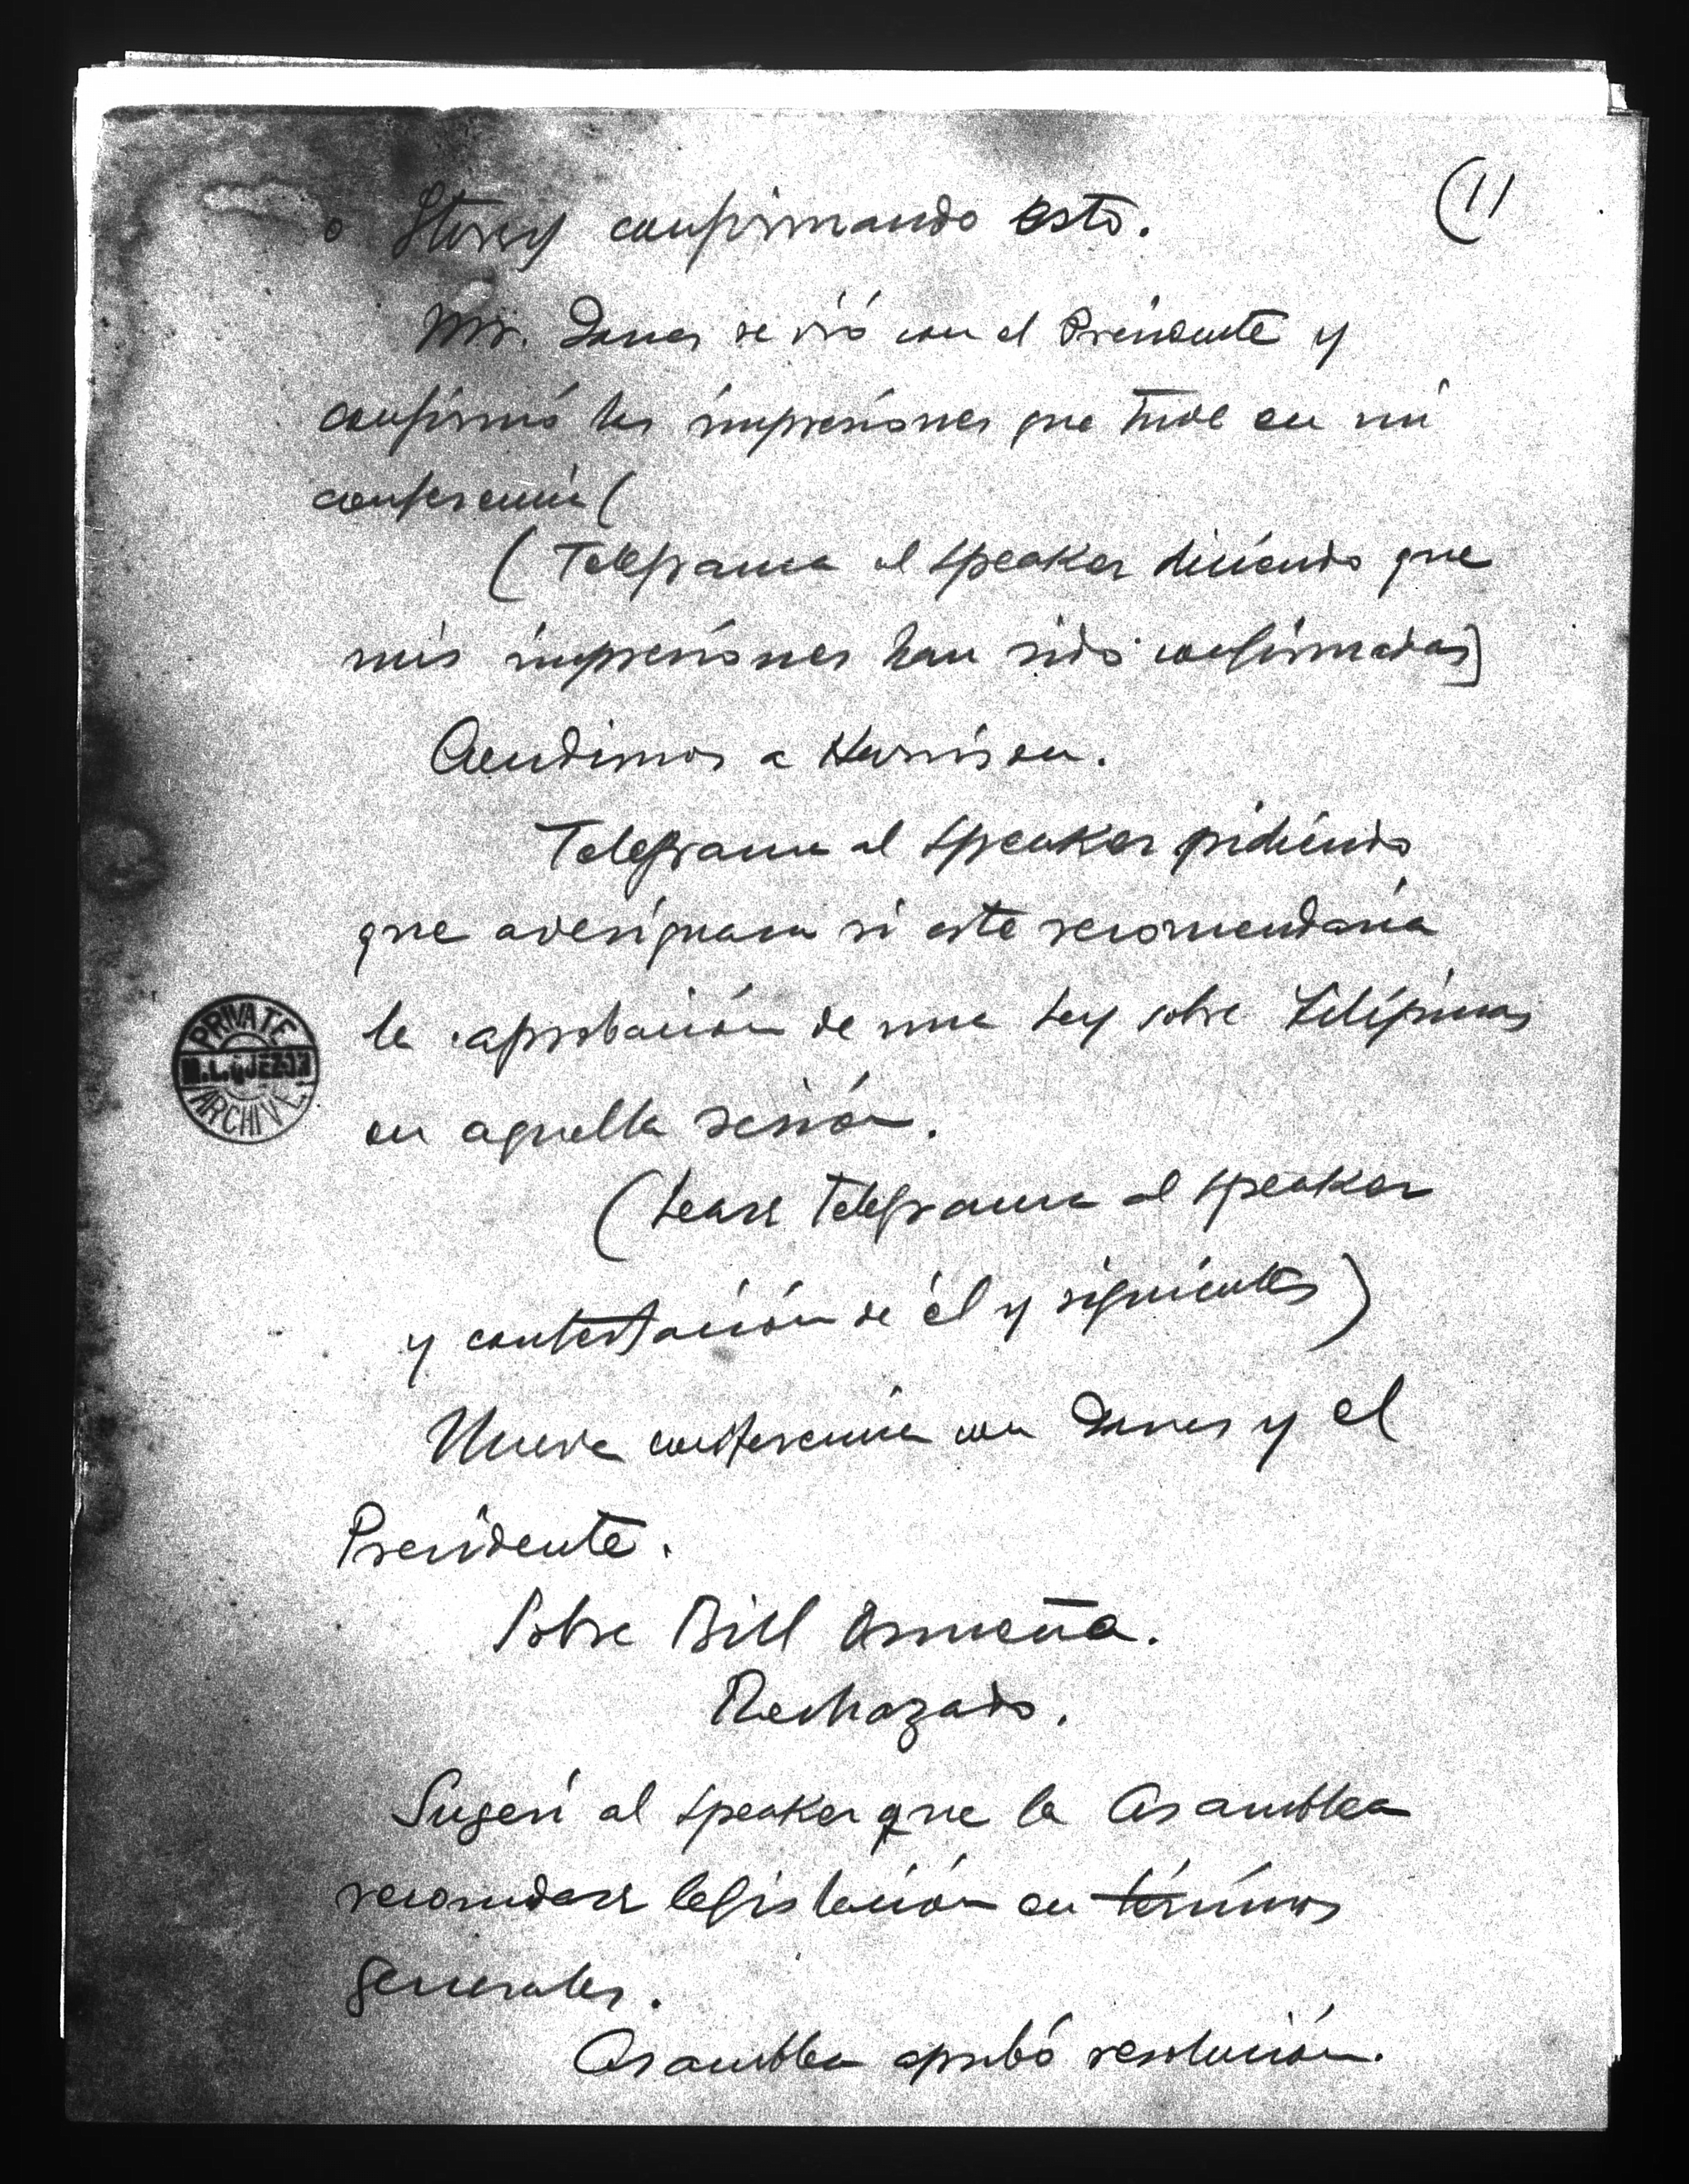 (11
o Storey confirmando esto.
Mr. Jones se vió con el Presidente y
confirmó las impresiones que tuve en mi
conferencia (
(Telegrama al Speaker diciendo que
mis impresiones han sido confirmadas]
Acudimos a Harrison.
Telegrama al Speaker pidiendo
que averiguara si este recomendaria
la aprobación de una Ley sobre Filipinas
en aquella sesión.
(Lease telegrama al Speaker
y contestación de él y siguientes)
Nueva conferencia con Jones y el
Presidente.
Sobre Bill Osmeña.
Rechazado.
Sugerí al Speaker que la Asamblea
recomendase legislación en términos
generales.
Asamblea aprobó resolución.
PRIVATE
M.L. QUEZON
ARCHIVE